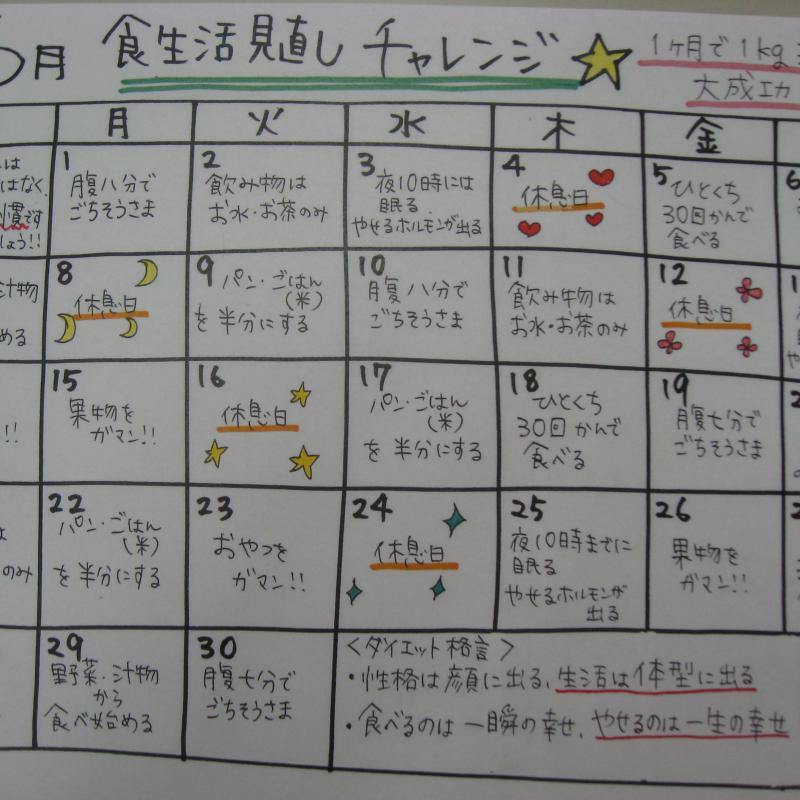 月 食生活見直し チャレンジ
1ヶ月で1kg
大成功
月 火 水 木 金
1
腹八分で
ごちそうさま
2
飲み物は
お水・お茶のみ
3
夜10時には
眠る
やせるホルモンが出る
4
休息日
5
ひとくち
30回かんで
食べる
6
はなく、
慣です
しょう!!
8
休息日
9
パン・ごはん
(米)
を半分にする
10
腹八分で
ごちそうさま
11
飲み物は
お水・お茶のみ
12
休息日
汁物
める
15
果物を
ガマン!!
16
休息日
17
パン・ごはん
(米)
を半分にする
18
ひとくち
30回かんで
食べる
19
腹七分で
ごちそうさま
!!
22
パン・ごはん
(米)
を半分にする
23
おやつを
ガマン!!
24
休息日
25
夜10時までに
眠る
やせるホルモンが
出る
26
果物を
ガマン!!
のみ
29
野菜・汁物
から
食べ始める
30
腹七分で
ごちそうさま
<ダイエット格言>
・性格は顔に出る、生活は体型に出る
・食べるのは一瞬の幸せ、やせるのは一生の幸せ